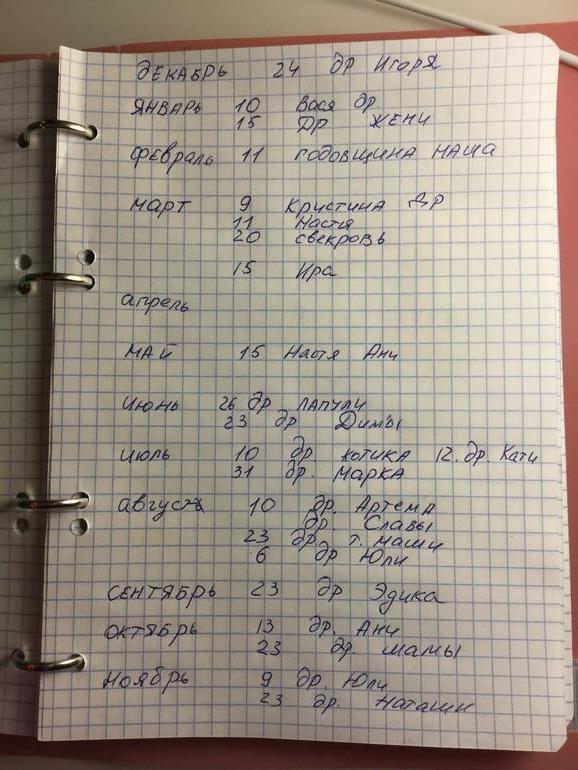 ДЕКАБРЬ 24 ДР ИГОРЯ
ЯНВАРЬ 10 Вася др.
15 ДР ЖЕНИ
ФЕВРАЛЬ 11 ГОДОВЩИНА МАША
МАРТ 9 Кристина ДР
11 Настя
20 свекровь
15 Ира
апрель
МАЙ 15 Настя Ани
Июнь 26 др ЛАПУЛИ
23 др Димы
Июль 10 др котика 12. др. Кати
31 др. Марка
август 10 др. Артема
др. Славы
23 др. т. маши
6 др Юли
СЕНТЯБРЬ 23 др Эдика
ОКТЯБРЬ 13 др. Ани
23 др мамы
Ноябрь 9 др. Юли
23 др. Наташи